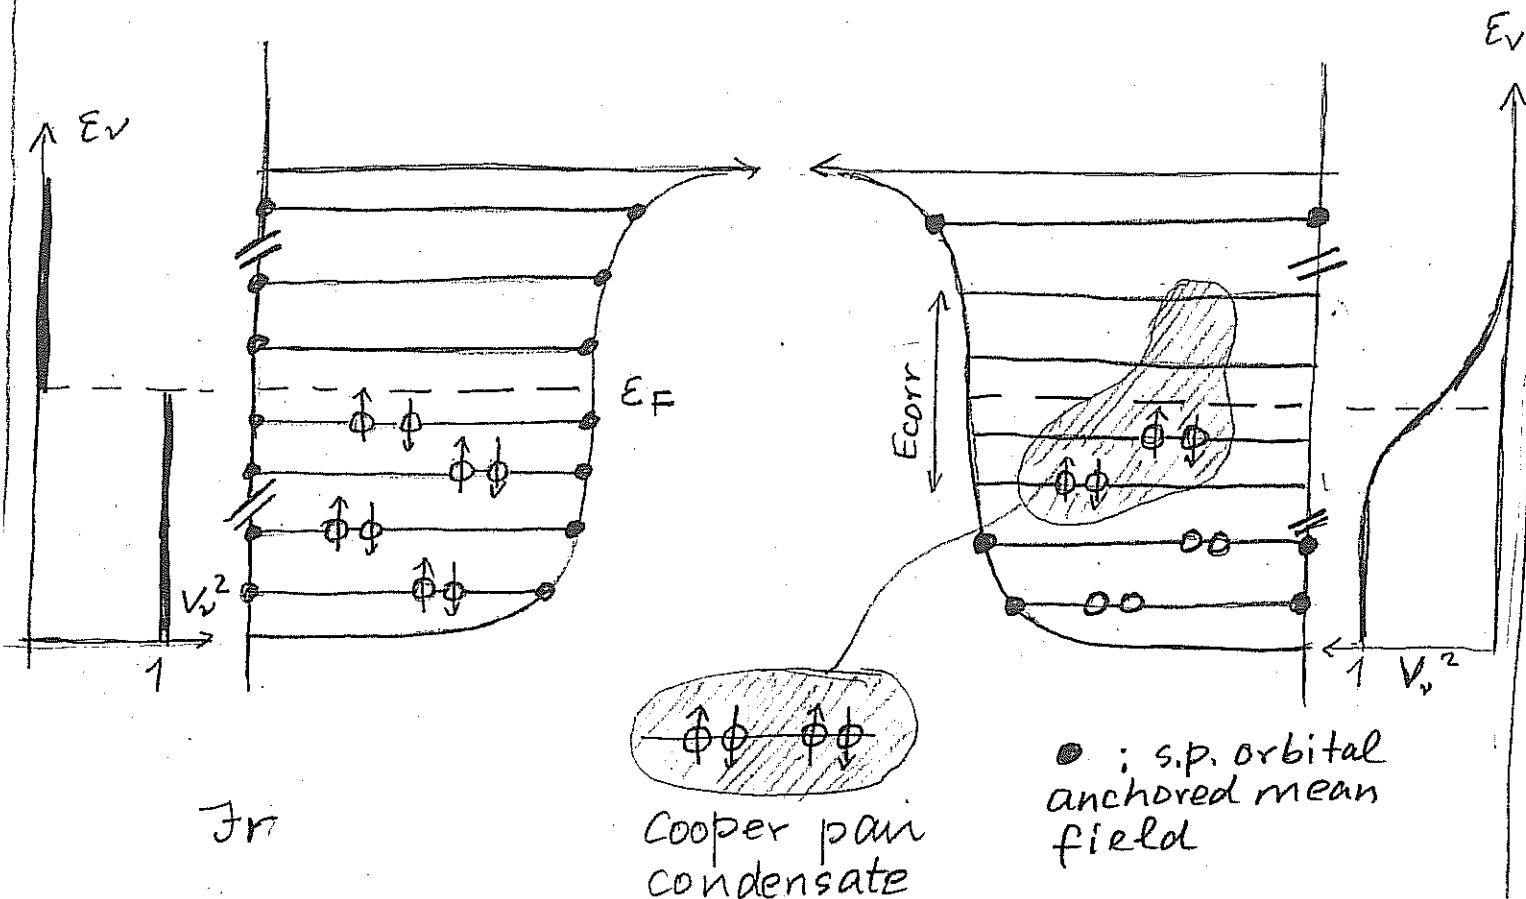 εν
Vν²
1
εF
Ecorr
εν
1
Vν²
Cooper pair
condensate
● : s.p. orbital
anchored mean
field